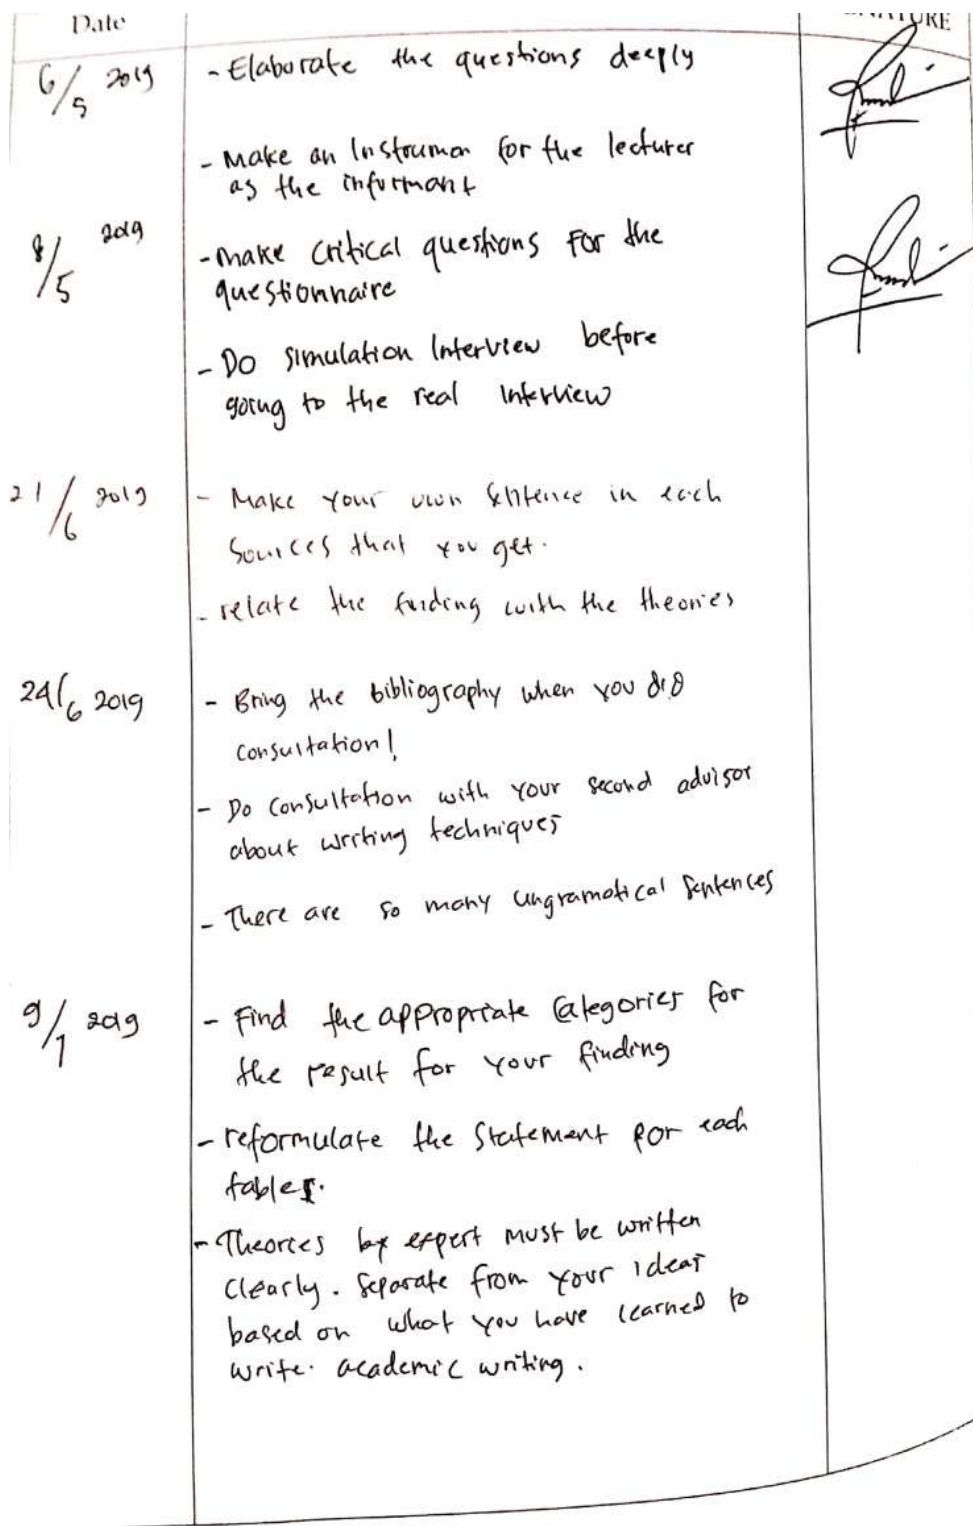 Date
NATURE
6/5 2019
- Elaborate the questions deeply
- Make an Instrumen for the lecturer
as the informant
8/5 2019
- make critical questions for the
questionnaire
- Do simulation Interview before
going to the real Interview
21/6 2019
- Make your own sentence in each
Sources that you get.
- relate the finding with the theories
24/6 2019
- Bring the bibliography when you did
consultation!
- Do consultation with your second advisor
about writing techniques
- There are so many ungramatical sentences
9/7 2019
- Find the appropriate categories for
the result for your finding
- reformulate the statement for each
tables.
- Theories by expert must be written
clearly. Separate from your ideas
based on what you have learned to
write. academic writing.